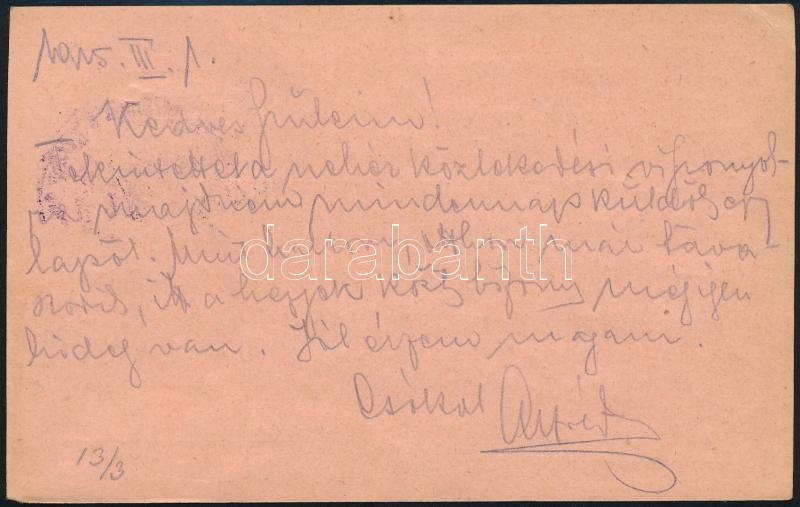 1915. III. 1.
Kedves Szüleim!
Tekintettel a nehéz közlekedési viszonyok-
ra majdnem mindennap küldök egy
lapot. Mint már tava-
szodik, itt a hegyek közt bizony még igen
hideg van. Jól érzem magam.
Csókol Alfréd
13/3
darabanth